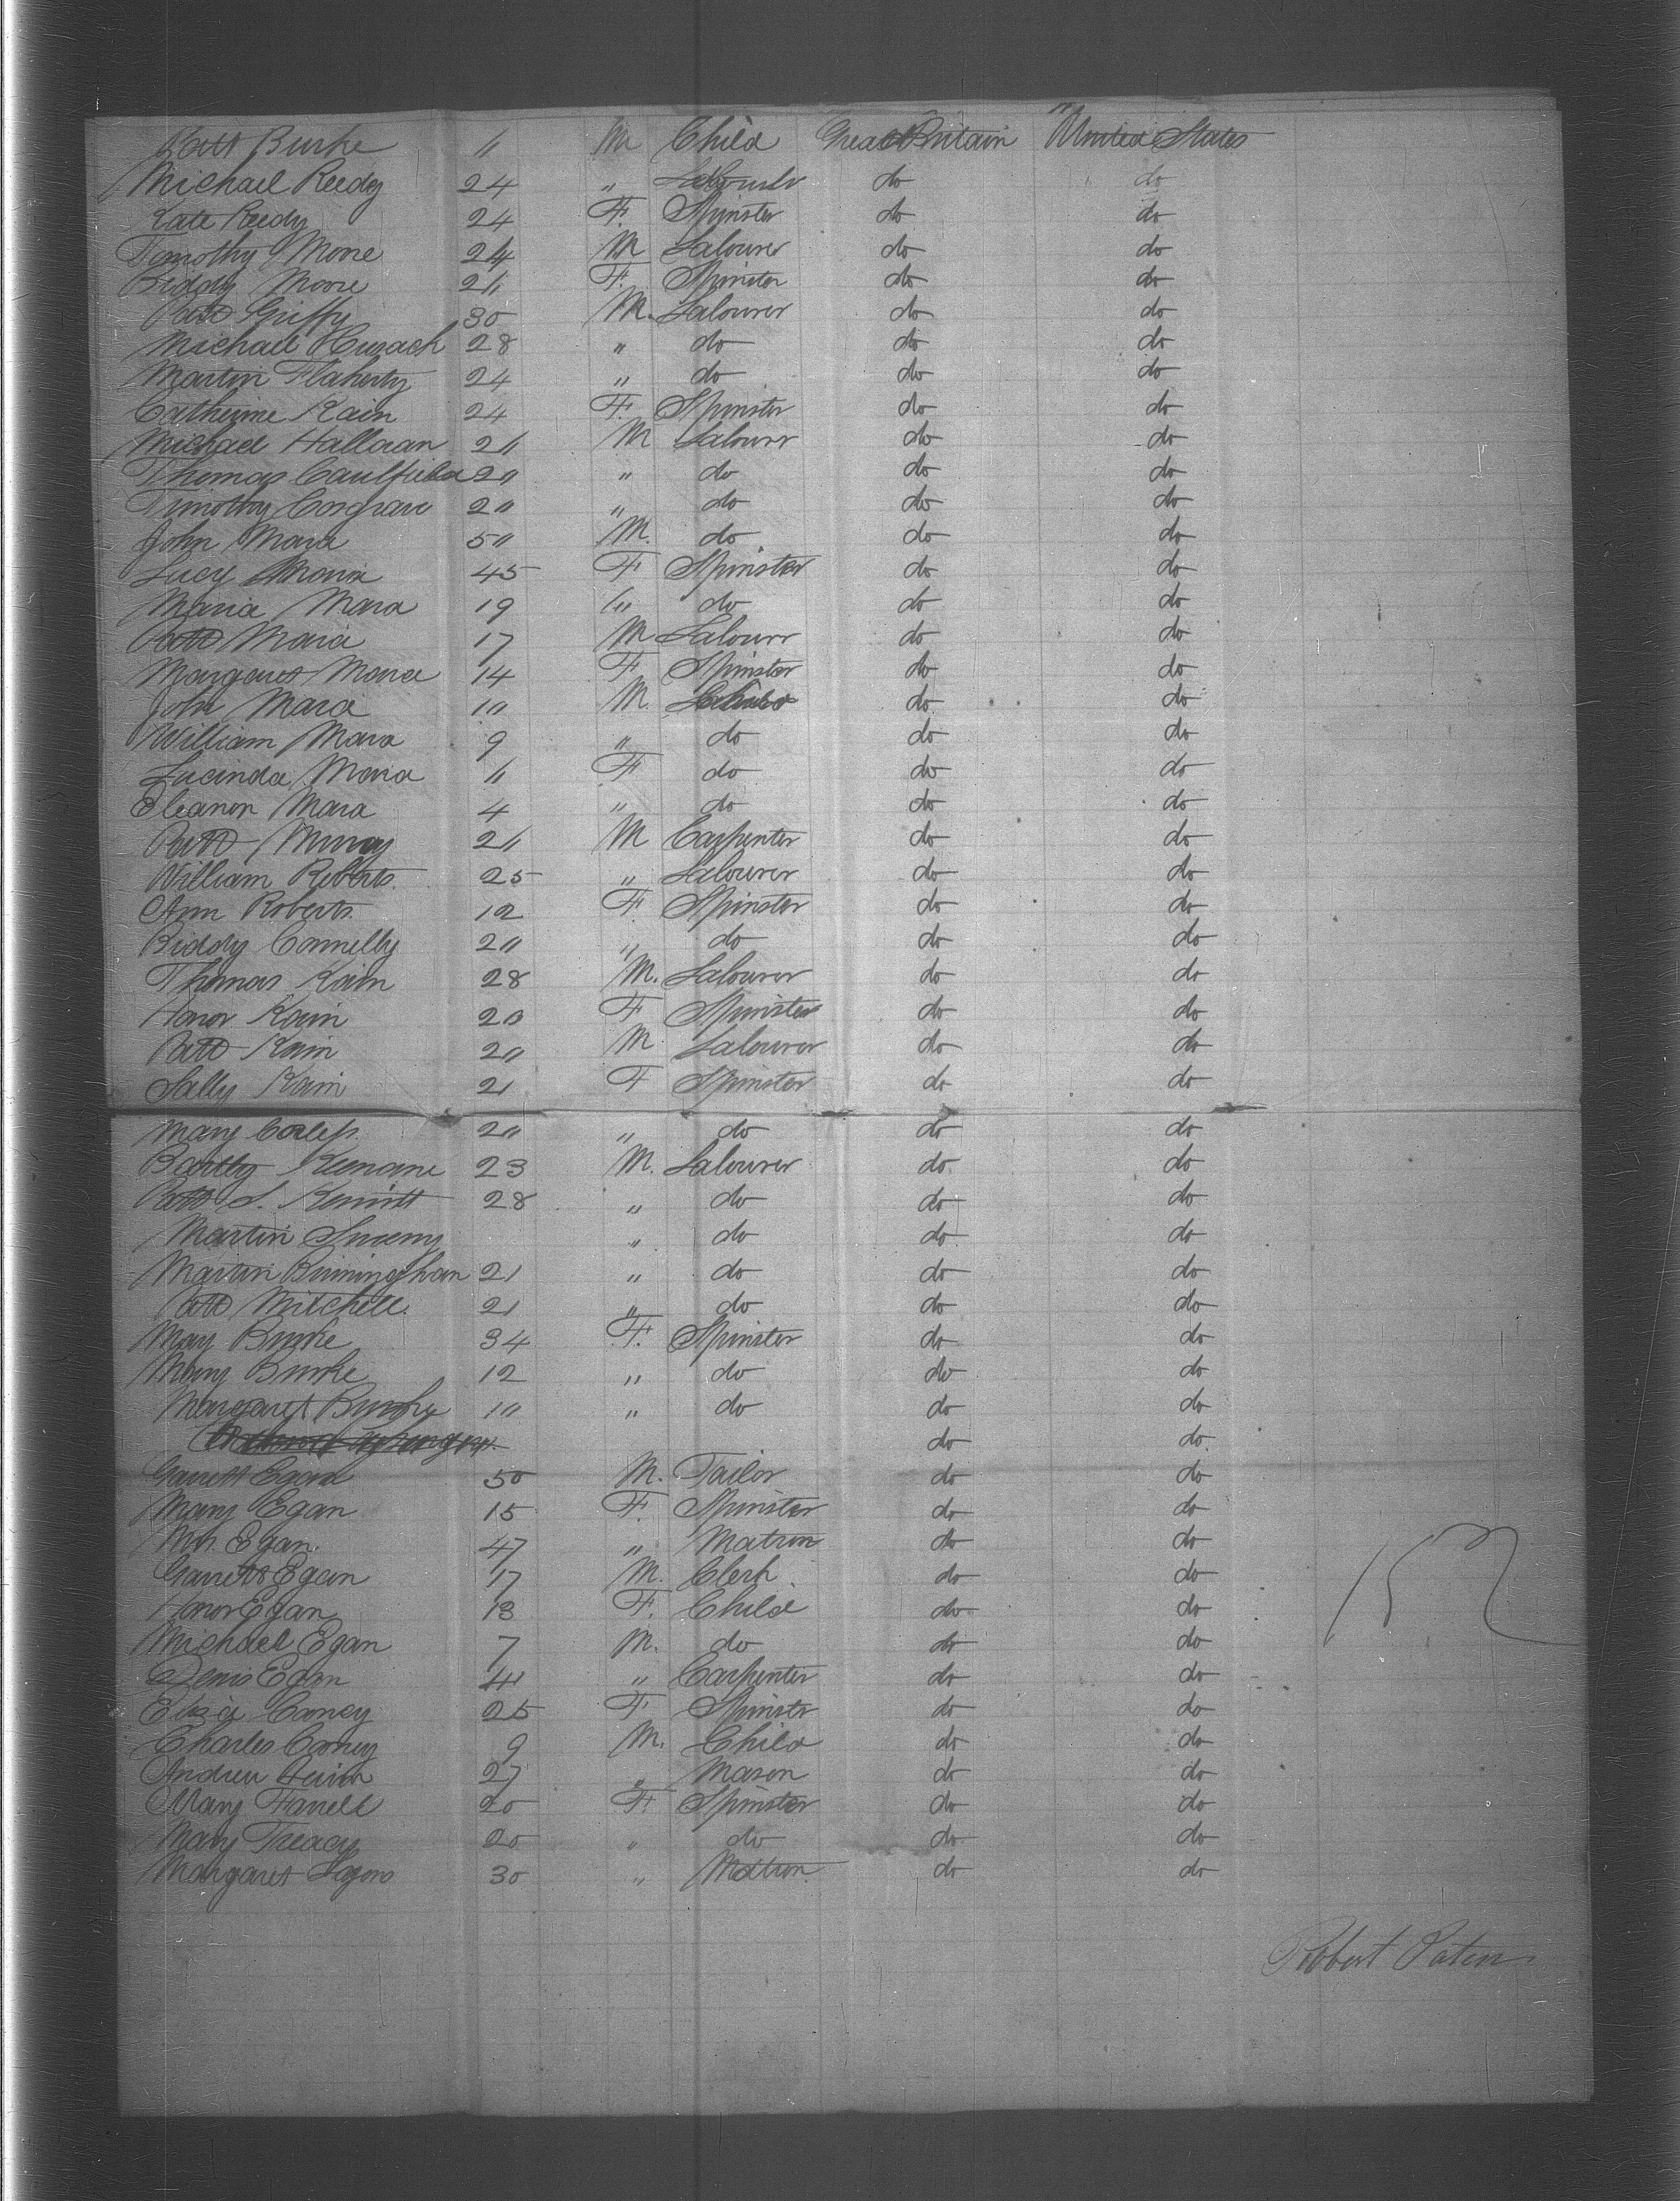 Patt Burke 11 M Child Great Britain United States
Michael Reedy 24 " Labourer do do
Kate Reedy 24 F. Spinster do do
Timothy Moore 24 M Labourer do do
Biddy Moore 211 F. Spinster do do
Patt Griffy 30 M. Labourer do do
Michael 28 " do do do
Martin Flaherty 24 " do do do
Catherine Kain 24 F. Spinster do do
Michael Halloran 211 M Labourer do do
Thomas Caulfield 211 " do do do
Timothy Cosgrave 211 " do do do
John Mara 511 M. do do do
Lucy Mara 45 F Spinster do do
Maria Mara 19 " do do do
Patt Mara 17 M Labourer do do
Margaret Mara 14 F Spinster do do
John Mara 111 M. Child do do
William Mara 9 " do do do
Lucinda Mara 11 F do do do
Eleanor Mara 4 " do do do
Patt Murray 211 M Carpenter do do
William Roberts. 25 " Labourer do do
Ann Roberts. 12 F. Spinster do do
Biddy Connelly 211 " do do do
Thomas Kain 28 M. Labourer do do
Honor Kain 20 F Spinster do do
Patt Kain 211 M Labourer do do
Sally Kain 21 F Spinster do do
Mary Corless. 211 " do do do
Bartly Keenane 23 M. Labourer do do
Patt S. 28 " do do do
Martin Sweeny " do do do
Martin Birmingham 21 " do do do
Patt Mitchell. 21 " do do do
May Burke 34 F. Spinster do do
Mary Burke 12 " do do do
Margaret Burke 111 " do do do
do do
Garrett Egan 50 M. Tailor do do
Mary Egan 15 F. Spinster do do
Mrs. Egan. 47 " Matron do do
Garrett Egan 17 M. Clerk do do
Honor Egan 13 F. Child do do
Michael Egan 7 M. do do do
Denis Egan 41 " Carpenter do do
Eliza Carney 25 F Spinster do do
Charles Carney 9 M. Child do do
Andrew Quinn 27 " Mason do do
Mary Farrell 20 F. Spinster do do
Mary Treacy 20 " do do do
Margaret Lyons 30 " Matron do do
Robert Paton